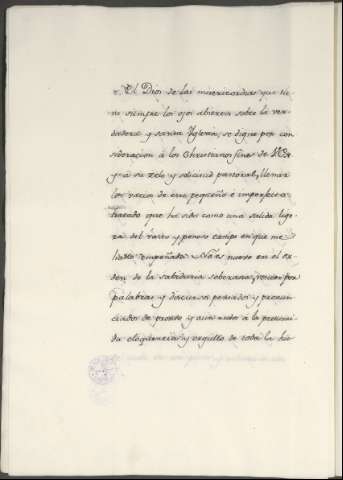 El Dios de las misericordias que tie-
ne siempre los ojos abiertos sobre la ver-
dadera y santa Yglesia, se digne por con
sideracion à los Christianos fines de
y à su zelo y solicitud pastoral, llenar
los vacios de este pequeño è imperfecto
tratado que ha sido como una salida lige-
ra del vasto y penoso campo en que me
he empeñado. No es nuevo en el or-
den de la sabiduria soberana, por
palabras y discursos pensados y pronun
ciados de pronto y aun rudos à la
da eloquencia y orgullo de toda la